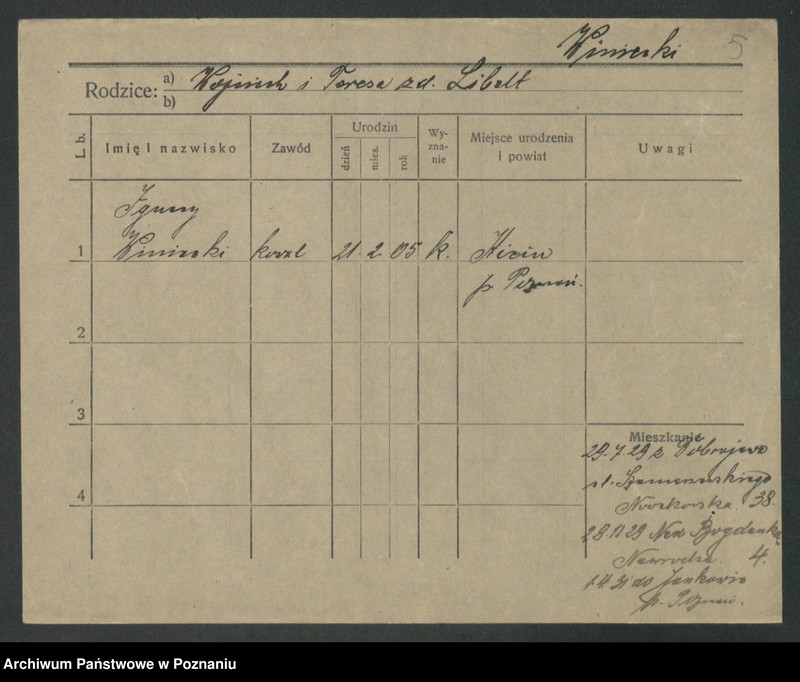 Winiecki 5
Rodzice: a) b) Wojciech i Teresa zd. Libelt
L. b. Imię i nazwisko Zawód Urodzin dzień mies. rok Wyznanie Miejsce urodzenia i powiat Uwagi
Ignacy
1 Winiecki kowal 21. 2. 05 k. Kicin
p. Poznań.
2
3
Mieszkanie
29.7.29 z Dobrojewo
4
Noskowska 38.
28 11 29 Nad Bogdanką
4.
1 4 31 do Jankowic
p. Poznań.
Archiwum Państwowe w Poznaniu